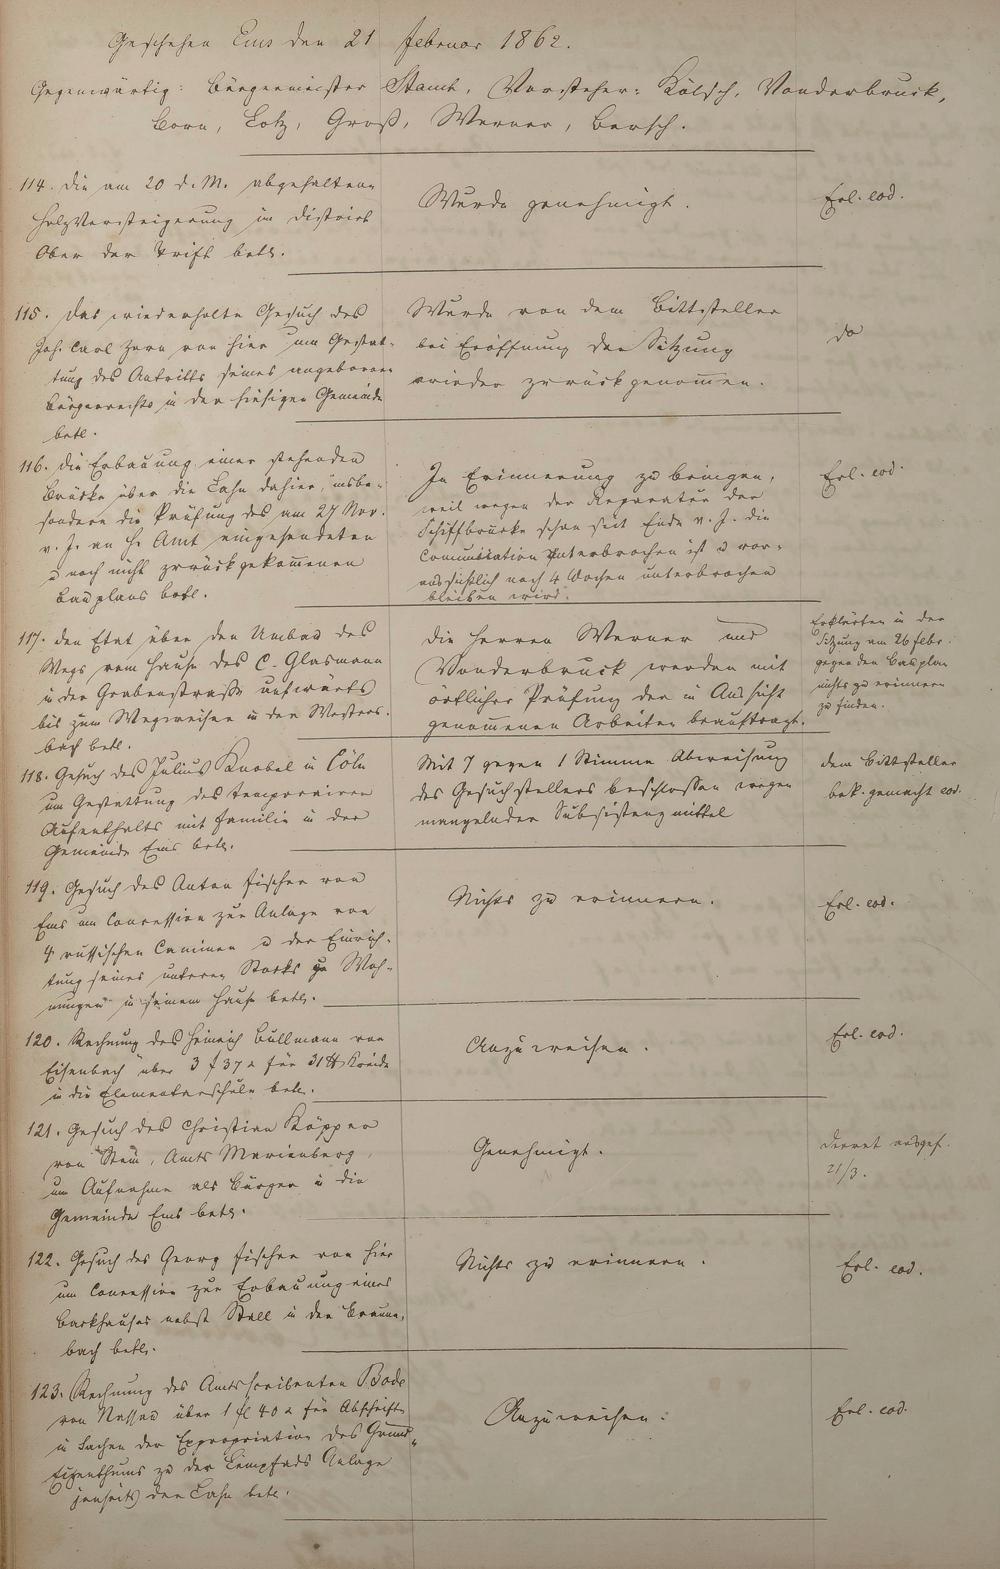 Geschehen Ems den 21 Februar 1862.
Gegenwärtig: Bürgermeister Stamt, Vorsteher: Kölsch, Vonderbruck,
Born, Lotz, Groß, Werner, Bersch.
114. Die am 20 d. M. abgehaltene
Holzversteigerung im District
Ober der Trift betr.
Wurde genehmigt.
Erl. eod.
115. Das wiederholte Gesuch des
Joh. Carl Zorn von hier um Gestat-
tung des Antritts seines angebornen
Bürgerrechts in der hiesigen Gemeinde
betr.
Wurde von dem Bittsteller
bei Eröffnung der Sitzung
wieder zurückgenommen.
do
116. Die Erbauung einer stehenden
Brücke über die Lahn dahier, insbe-
sondere die Prüfung des am 27 Nov.
v. J. an H. Amt eingesendeten
u noch nicht zurückgekommenen
Bauplans betr.
In Erinnerung zu bringen,
weil wegen der Reparatur der
Schiffbrücke schon seit Ende v. J. die
Communication unterbrochen ist u vor-
aussichtlich noch 4 Wochen unterbrochen
bleiben wird.
Erl. eod.
117. Den Etat über den Umbau des
Wegs vom Hause des C. Glasmann
in der Grabenstraße aufwärts
bis zum Wegweiser in der Wester-
bach betr.
Die Herren Werner und
Vonderbruck werden mit
örtlicher Prüfung der in Aussicht
genommenen Arbeiten beauftragt.
Erklärten in der
Sitzung am 26 Febr.
gegen den Bauplan
nichts zu erinnern
zu finden.
118. Gesuch des Julius Knobel in Cöln
um Gestattung des temporairen
Aufenthalts mit Familie in der
Gemeinde Ems betr.
Mit 7 gegen 1 Stimme Abweisung
des Gesuchstellers beschlossen wegen
mangelnder Subsistenzmittel
dem Bittsteller
bek. gemacht eod.
119. Gesuch des Anton Fischer von
Ems um Concession zur Anlage von
4 russischen Caminen u der Einrich-
tung seines unteren Stocks zu Woh-
nungen in seinem Hause betr.
Nichts zu erinnern.
Erl. eod.
120. Rechnung des Heinrich Bullmann von
Eisenbach über 3 f 37 x für 31 ℔ Kreide
in die Elementarschule betr.
Anzuweisen.
Erl. eod.
121. Gesuch des Christian Köpper
von Stein, Amts Marienberg,
um Aufnahme als Bürger in die
Gemeinde Ems betr.
Genehmigt.
Decret ausgef.
21/3.
122. Gesuch des Georg Fischer von hier
um Concession zur Erbauung eines
Backhauses nebst Stall in der Braun-
bach betr.
Nichts zu erinnern.
Erl. eod.
123. Rechnung des Amtsscribenten Bode
von Nassau über 1 fl 40 x für Abschrift
in Sachen der Expropriation des Grund-
Eigenthums zu der Leinpfads Anlage
jenseits der Lahn betr.
Anzuweisen.
Erl. eod.